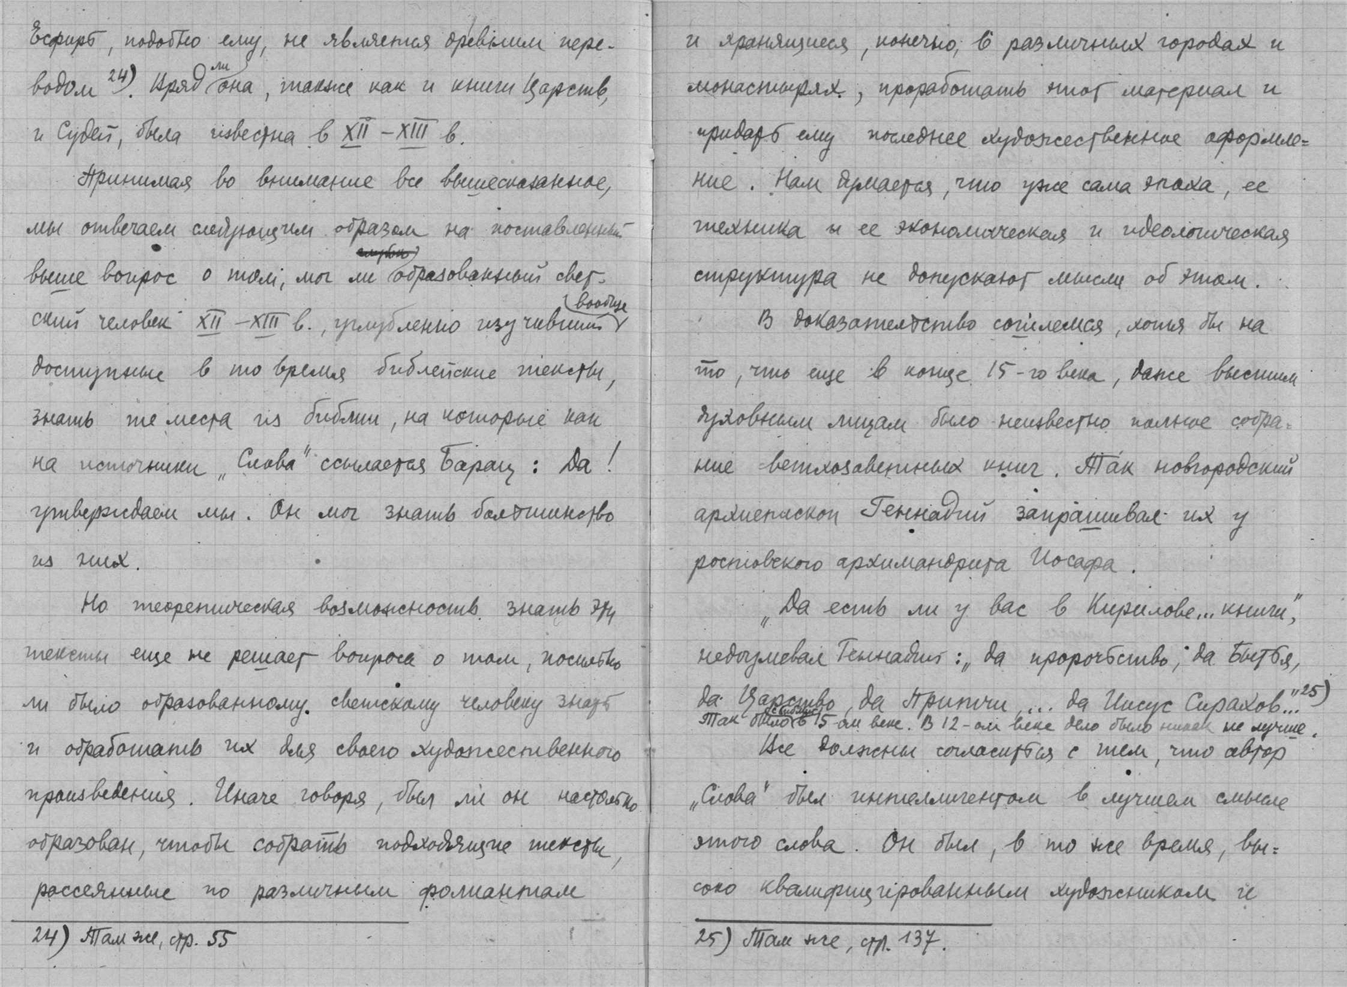 Есфирь, подобно ему, не является древним пере-
водом 24). Вряд ли она, также как и книги Царств,
и Судей, была известна в XII – XIII в.
Принимая во внимание все вышесказанное,
мы отвечаем следующим образом на поставленный
выше вопрос о том, мог ли образованный свет-
ский человек XII – XIII в., углубленно изучивший вообще
доступные в то время библейские тексты,
знать те места из библии, на которые как
на источники „Слова" ссылается Барац: Да!
утверждаем мы. Он мог знать большинство
из них.
Но теоретическая возможность знать эти
тексты еще не решает вопроса о том, посильно
ли было образованному светскому человеку знать
и обработать их для своего художественного
произведения. Иначе говоря, был ли он настолько
образован, чтобы собрать подходящие тексты,
рассеянные по различным фолиантам
24) Там же, стр. 55
и хранящиеся, конечно, в различных городах и
монастырях, проработать этот материал и
придать ему последнее художественное оформле=
ние. Нам думается, что уже сама эпоха, ее
техника и ее экономическая и идеологическая
структура не допускают мысли об этом.
В доказательство сошлемся, хотя бы на
то, что еще в конце 15-го века, даже высшим
духовным лицам было неизвестно полное собра=
ние ветхозаветных книг. Так новгородский
архиепископ Геннадий запрашивал их у
ростовского архимандрита Иосафа.
„Да есть ли у вас в Кирилове... книги",
недоумевал Геннадий: „да пророчьство, да Бытья,
да Царство, да Притчи, ... да Иисус Сирахов..." 25)
Так было в 15-ом веке. В 12-ом веке дело было никак не лучше.
Все должны согласиться с тем, что автор
„Слова" был интеллигентом в лучшем смысле
этого слова. Он был, в то же время, вы=
соко квалифицированным художником и
25) Там же, стр. 137.